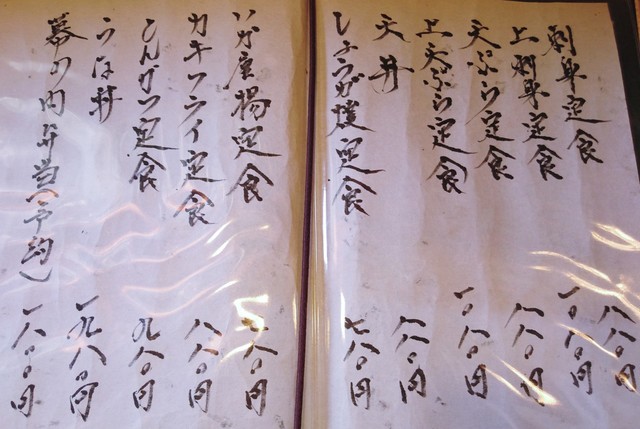 刺身定食 八八〇円
上刺身定食 一〇八〇円
天ぷら定食 八八〇円
上天ぷら定食 一〇八〇円
天丼 八八〇円
しょうが焼定食 七八〇円
いか唐揚定食 七八〇円
カキフライ定食 八八〇円
とんかつ定食 九八〇円
うな丼 一九八〇円
幕の内弁当(予約) 一八〇〇円